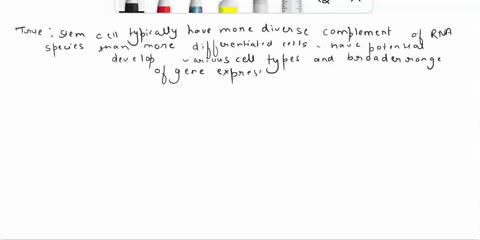 True : Stem cell typically have more diverse complement of RNA
species than more differentiated cells - have potential
develop various cell types and broader range
of gene expres